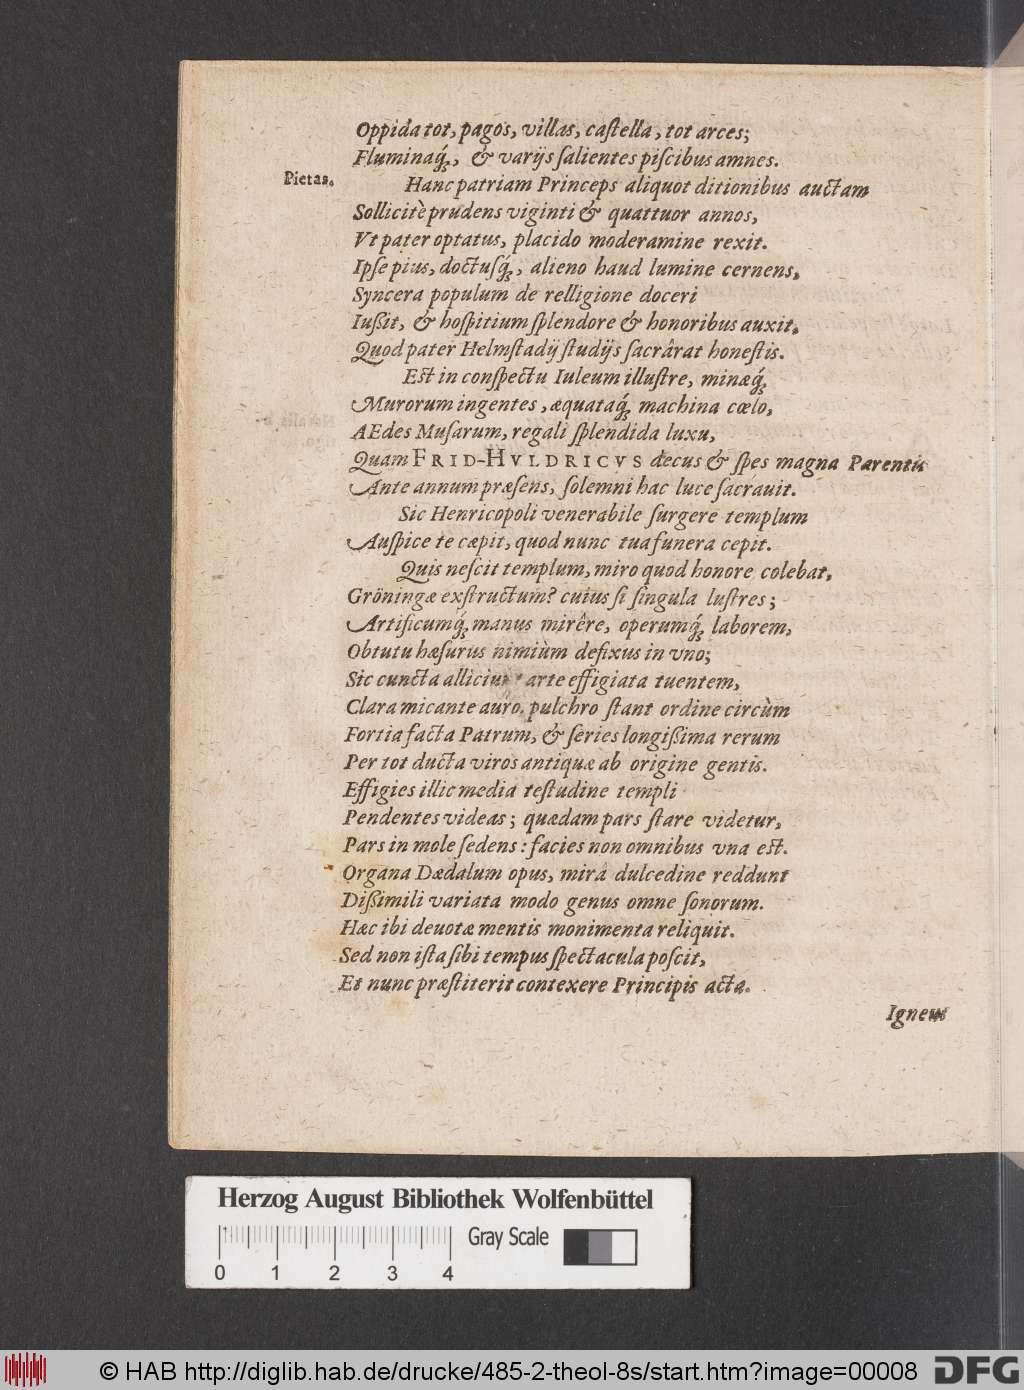 Oppida tot, pagos, villas, castella, tot arces;
Fluminaq́;, & varijs salientes piscibus amnes.
Pietas. Hanc patriam Princeps aliquot ditionibus auctam
Sollicitè prudens viginti & quattuor annos,
Vt pater optatus, placido moderamine rexit.
Ipse pius, doctusq́;, alieno haud lumine cernens,
Syncera populum de relligione doceri
Iußit, & hospitium splendore & honoribus auxit,
Quod pater Helmstadij studijs sacrârat honestis.
Est in conspectu Iuleum illustre, minæq́;
Murorum ingentes, æquataq́; machina cœlo,
AEdes Musarum, regali splendida luxu,
Quam FRID-HVLDRICVS decus & spes magna Parentis
Ante annum præsens, solemni hac luce sacrauit.
Sic Henricopoli venerabile surgere templum
Auspice te cæpit, quod nunc tua funera cepit.
Quis nescit templum, miro quod honore colebat,
Gröningæ exstructum? cuius si singula lustres;
Artificumq́; manus mirêre, operumq́; laborem,
Obtutu hæsurus nimiùm defixus in vno;
Sic cuncta alliciunt arte effigiata tuentem,
Clara micante auro. pulchro stant ordine circùm
Fortia facta Patrum, & series longißima rerum
Per tot ducta viros antiquæ ab origine gentis.
Effigies illic media testudine templi
Pendentes videas; quædam pars stare videtur,
Pars in mole sedens: facies non omnibus vna est.
Organa Dædalum opus, mirâ dulcedine reddunt
Dißimili variata modo genus omne sonorum.
Hæc ibi deuotæ mentis monimenta reliquit.
Sed non ista sibi tempus spectacula poscit,
Et nunc præstiterit contexere Principis acta.
Ignem
Herzog August Bibliothek Wolfenbüttel
Gray Scale
0 1 2 3 4
© HAB http://diglib.hab.de/drucke/485-2-theol-8s/start.htm?image=00008
DFG